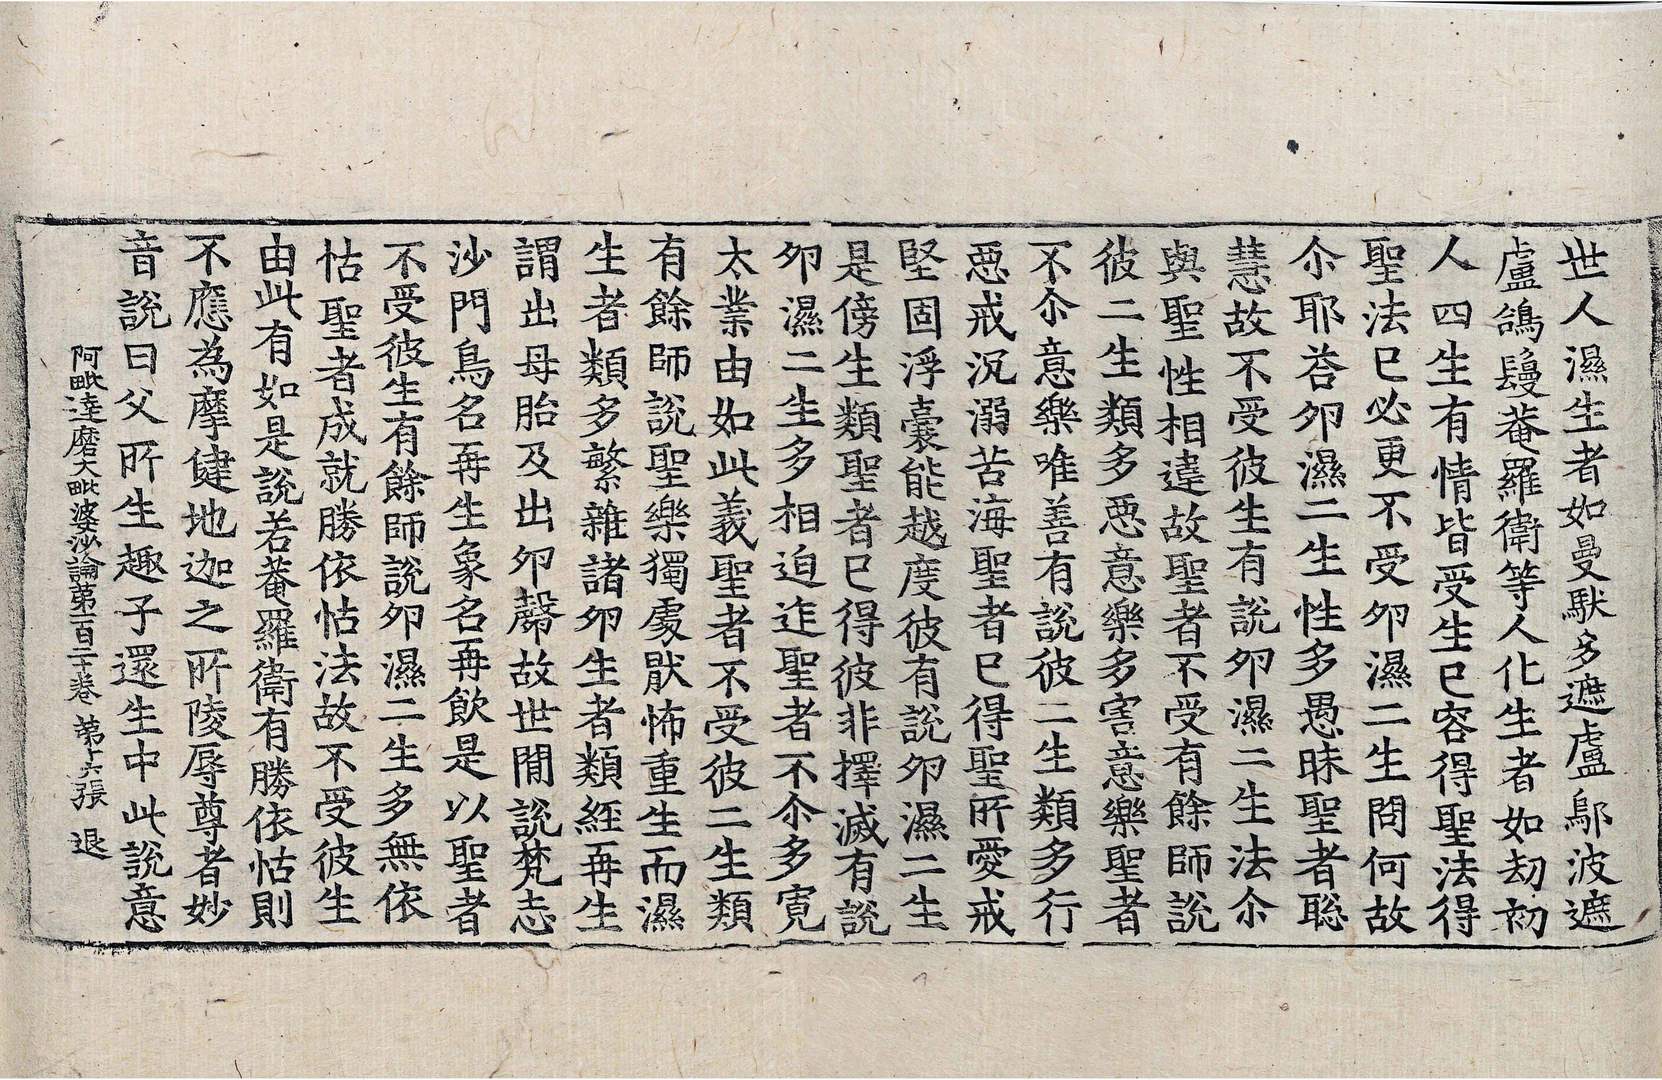 世人濕生者如曼馱多遮盧鄔波遮
盧鴿鬘菴羅衛等人化生者如劫初
人四生有情皆受生已容得聖法得
聖法已必更不受卵濕二生問何故
尒耶荅卵濕二生性多愚昧聖者聡
慧故不受彼生有說卵濕二生法尒
與聖性相違故聖者不受有餘師說
彼二生類多惡意樂多害意樂聖者
不尒意樂唯善有說彼二生類多行
惡戒沉溺苦海聖者已得聖所愛戒
堅固浮囊能越度彼有說卵濕二生
是傍生類聖者已得彼非擇滅有說
卵濕二生多相迫迮聖者不尒多寬
太業由如此義聖者不受彼二生類
有餘師說聖樂獨處猒怖重生而濕
生者類多繁雜諸卵生者類經再生
謂出母胎及出卵㲉故世間說梵志
沙門鳥名再生象名再飲是以聖者
不受彼生有餘師說卵濕二生多無依
怙聖者成就勝依怙法故不受彼生
由此有如是說若菴羅衛有勝依怙則
不應為摩健地迦之所陵辱尊者妙
音說曰父所生趣子還生中此說意
阿毗達磨大毗婆沙論第一百二十卷 第十六張 退